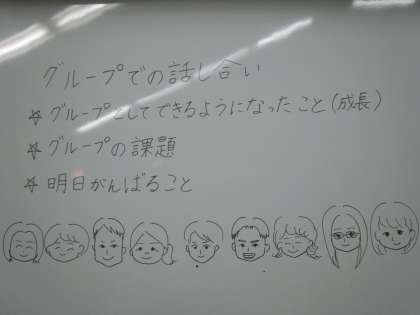 グループでの話し合い
☆グループとしてできるようになったこと(成長)
☆グループの課題
☆明日がんばること